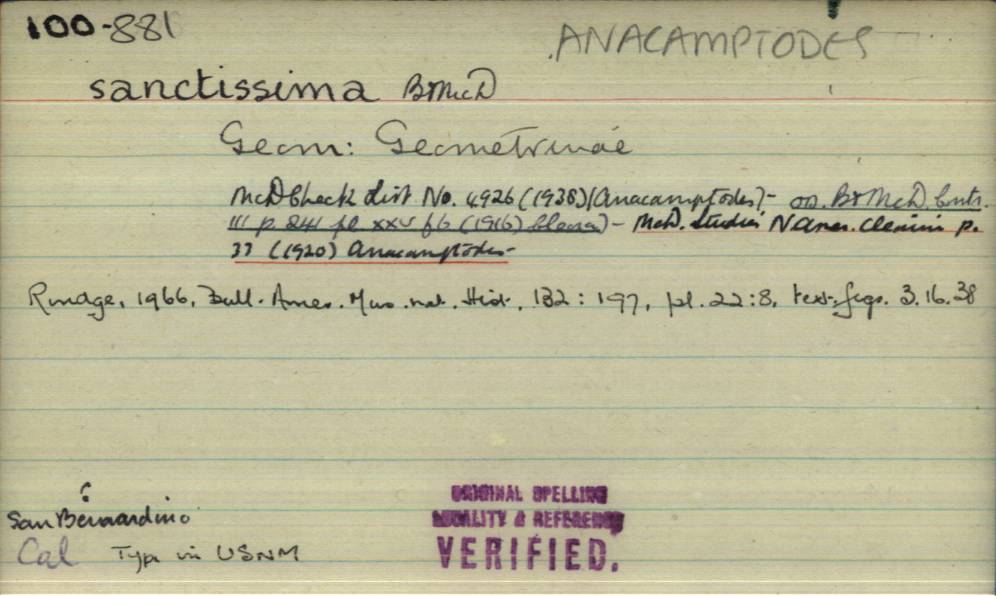 100-881
ANACAMPTODES
sanctissima B&McD
Geom: Geometrinae
McD Check List No. 4926 (1938) (Anacamptodes) - B&McD. Cont.
III p. 241 pl xxv f6 (1916) Cleora) - McD. Studies N Amer. Cleorini p.
37 (1920) Anacamptodes
Rindge, 1966, Bull. Amer. Mus. nat. Hist. 132: 197, pl. 22:8, text-figs. 3.16.38
San Bernardino
Cal Type in USNM
ORIGINAL SPELLING
LOCALITY & REFERENCE
VERIFIED.